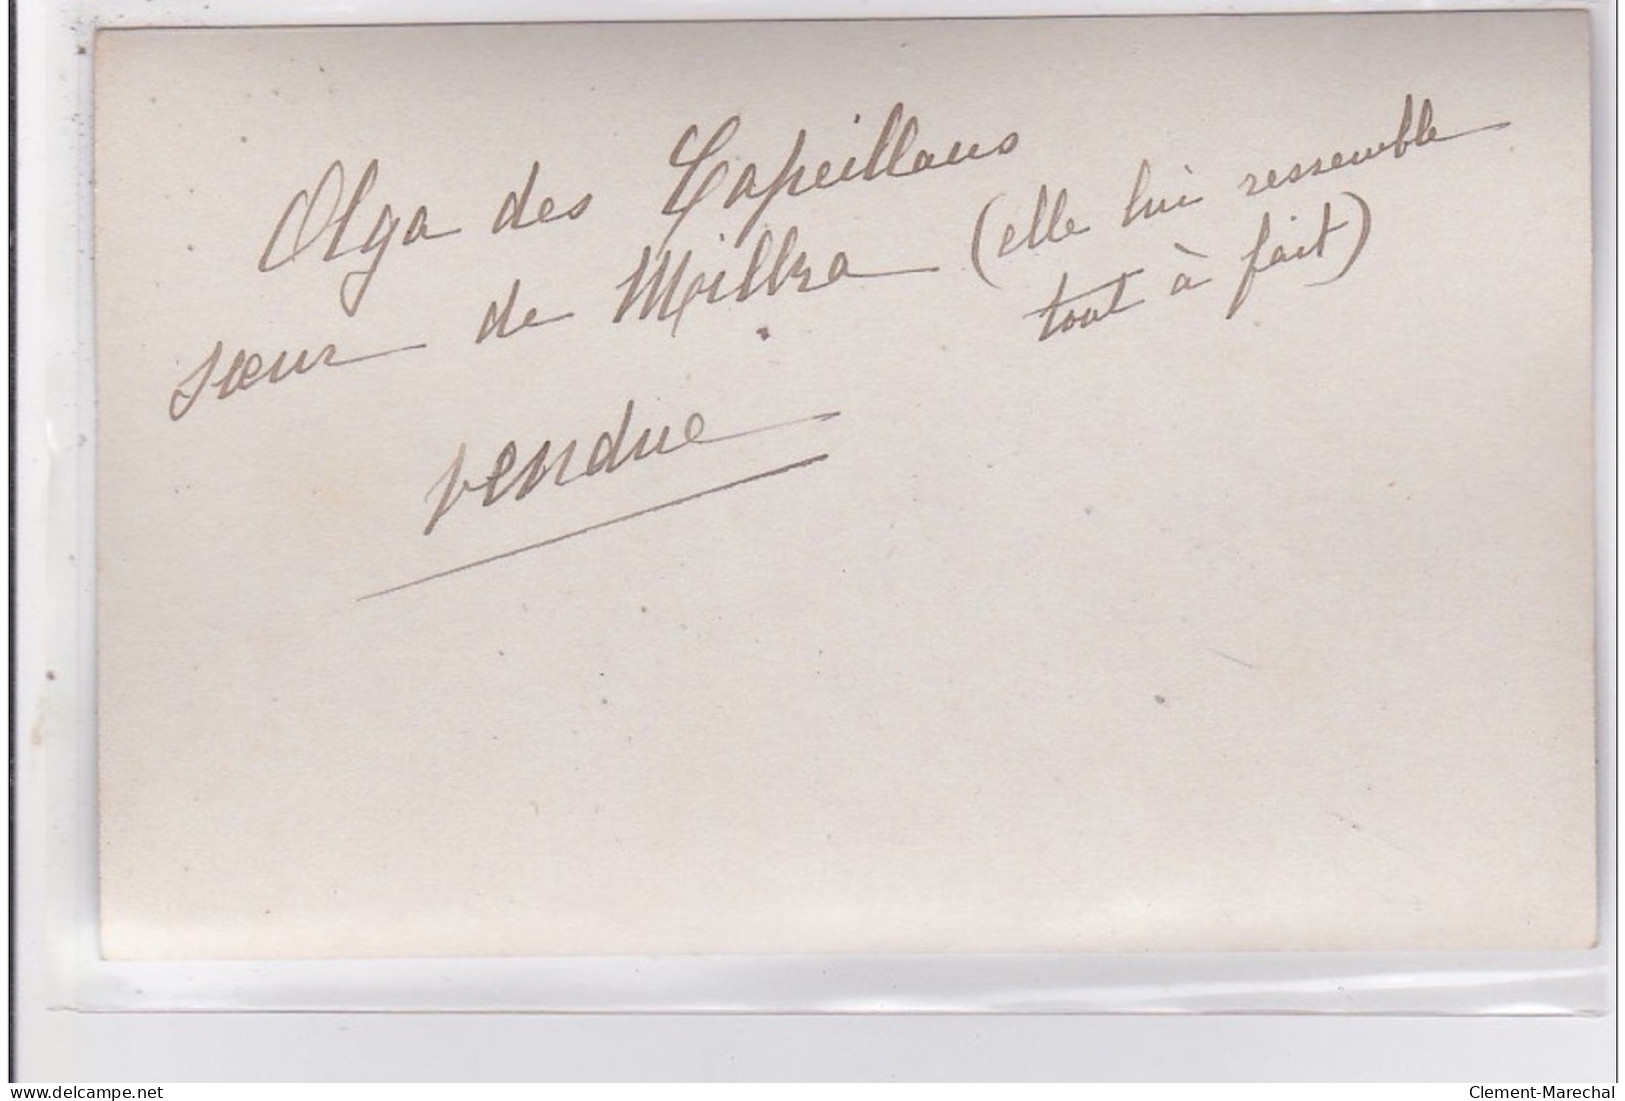 Olga des Capeillans
soeur de Milka (elle lui ressemble
tout à fait)
vendue
www.delcampe.net
Clement-Marechal